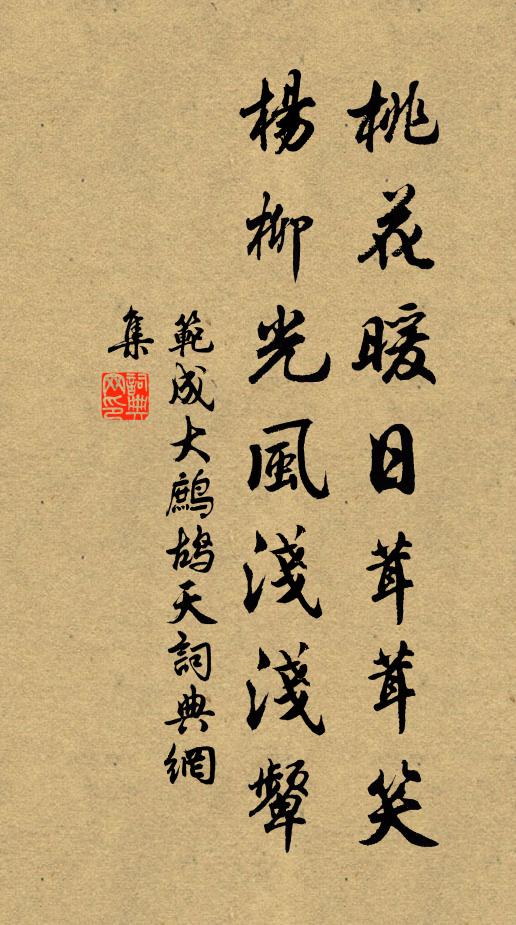 桃花暖日茸茸笑
楊柳光風淺淺顰
範成大鷓鴣天詞典網
集
詞典
网印